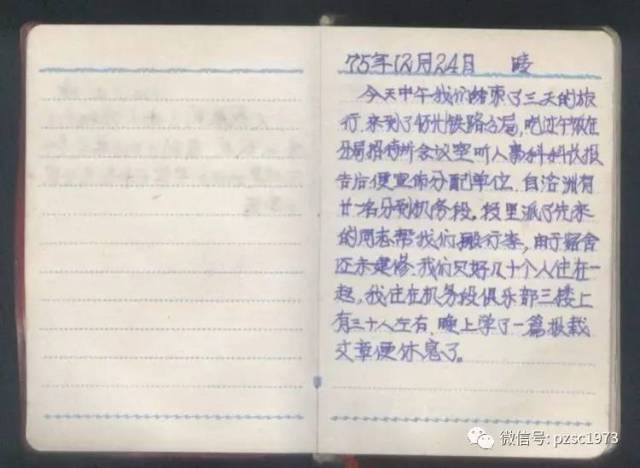 75年12月24日 晴
今天中午我们结束了三天的旅
行，来到了忻州铁路分局，吃过午饭在
分局招待所会议室听人事科科长报
告后便宣布分配单位。自洛洲有
廿名分到机务段，段里派了先来
的同志帮我们搬行李，由于宿舍
还未建修，我们只好几十个人住在一
起，我住在机务段俱乐部三楼上
有三十人左右。晚上学了一篇报载
文章便休息了。
微信号: pzsc1973